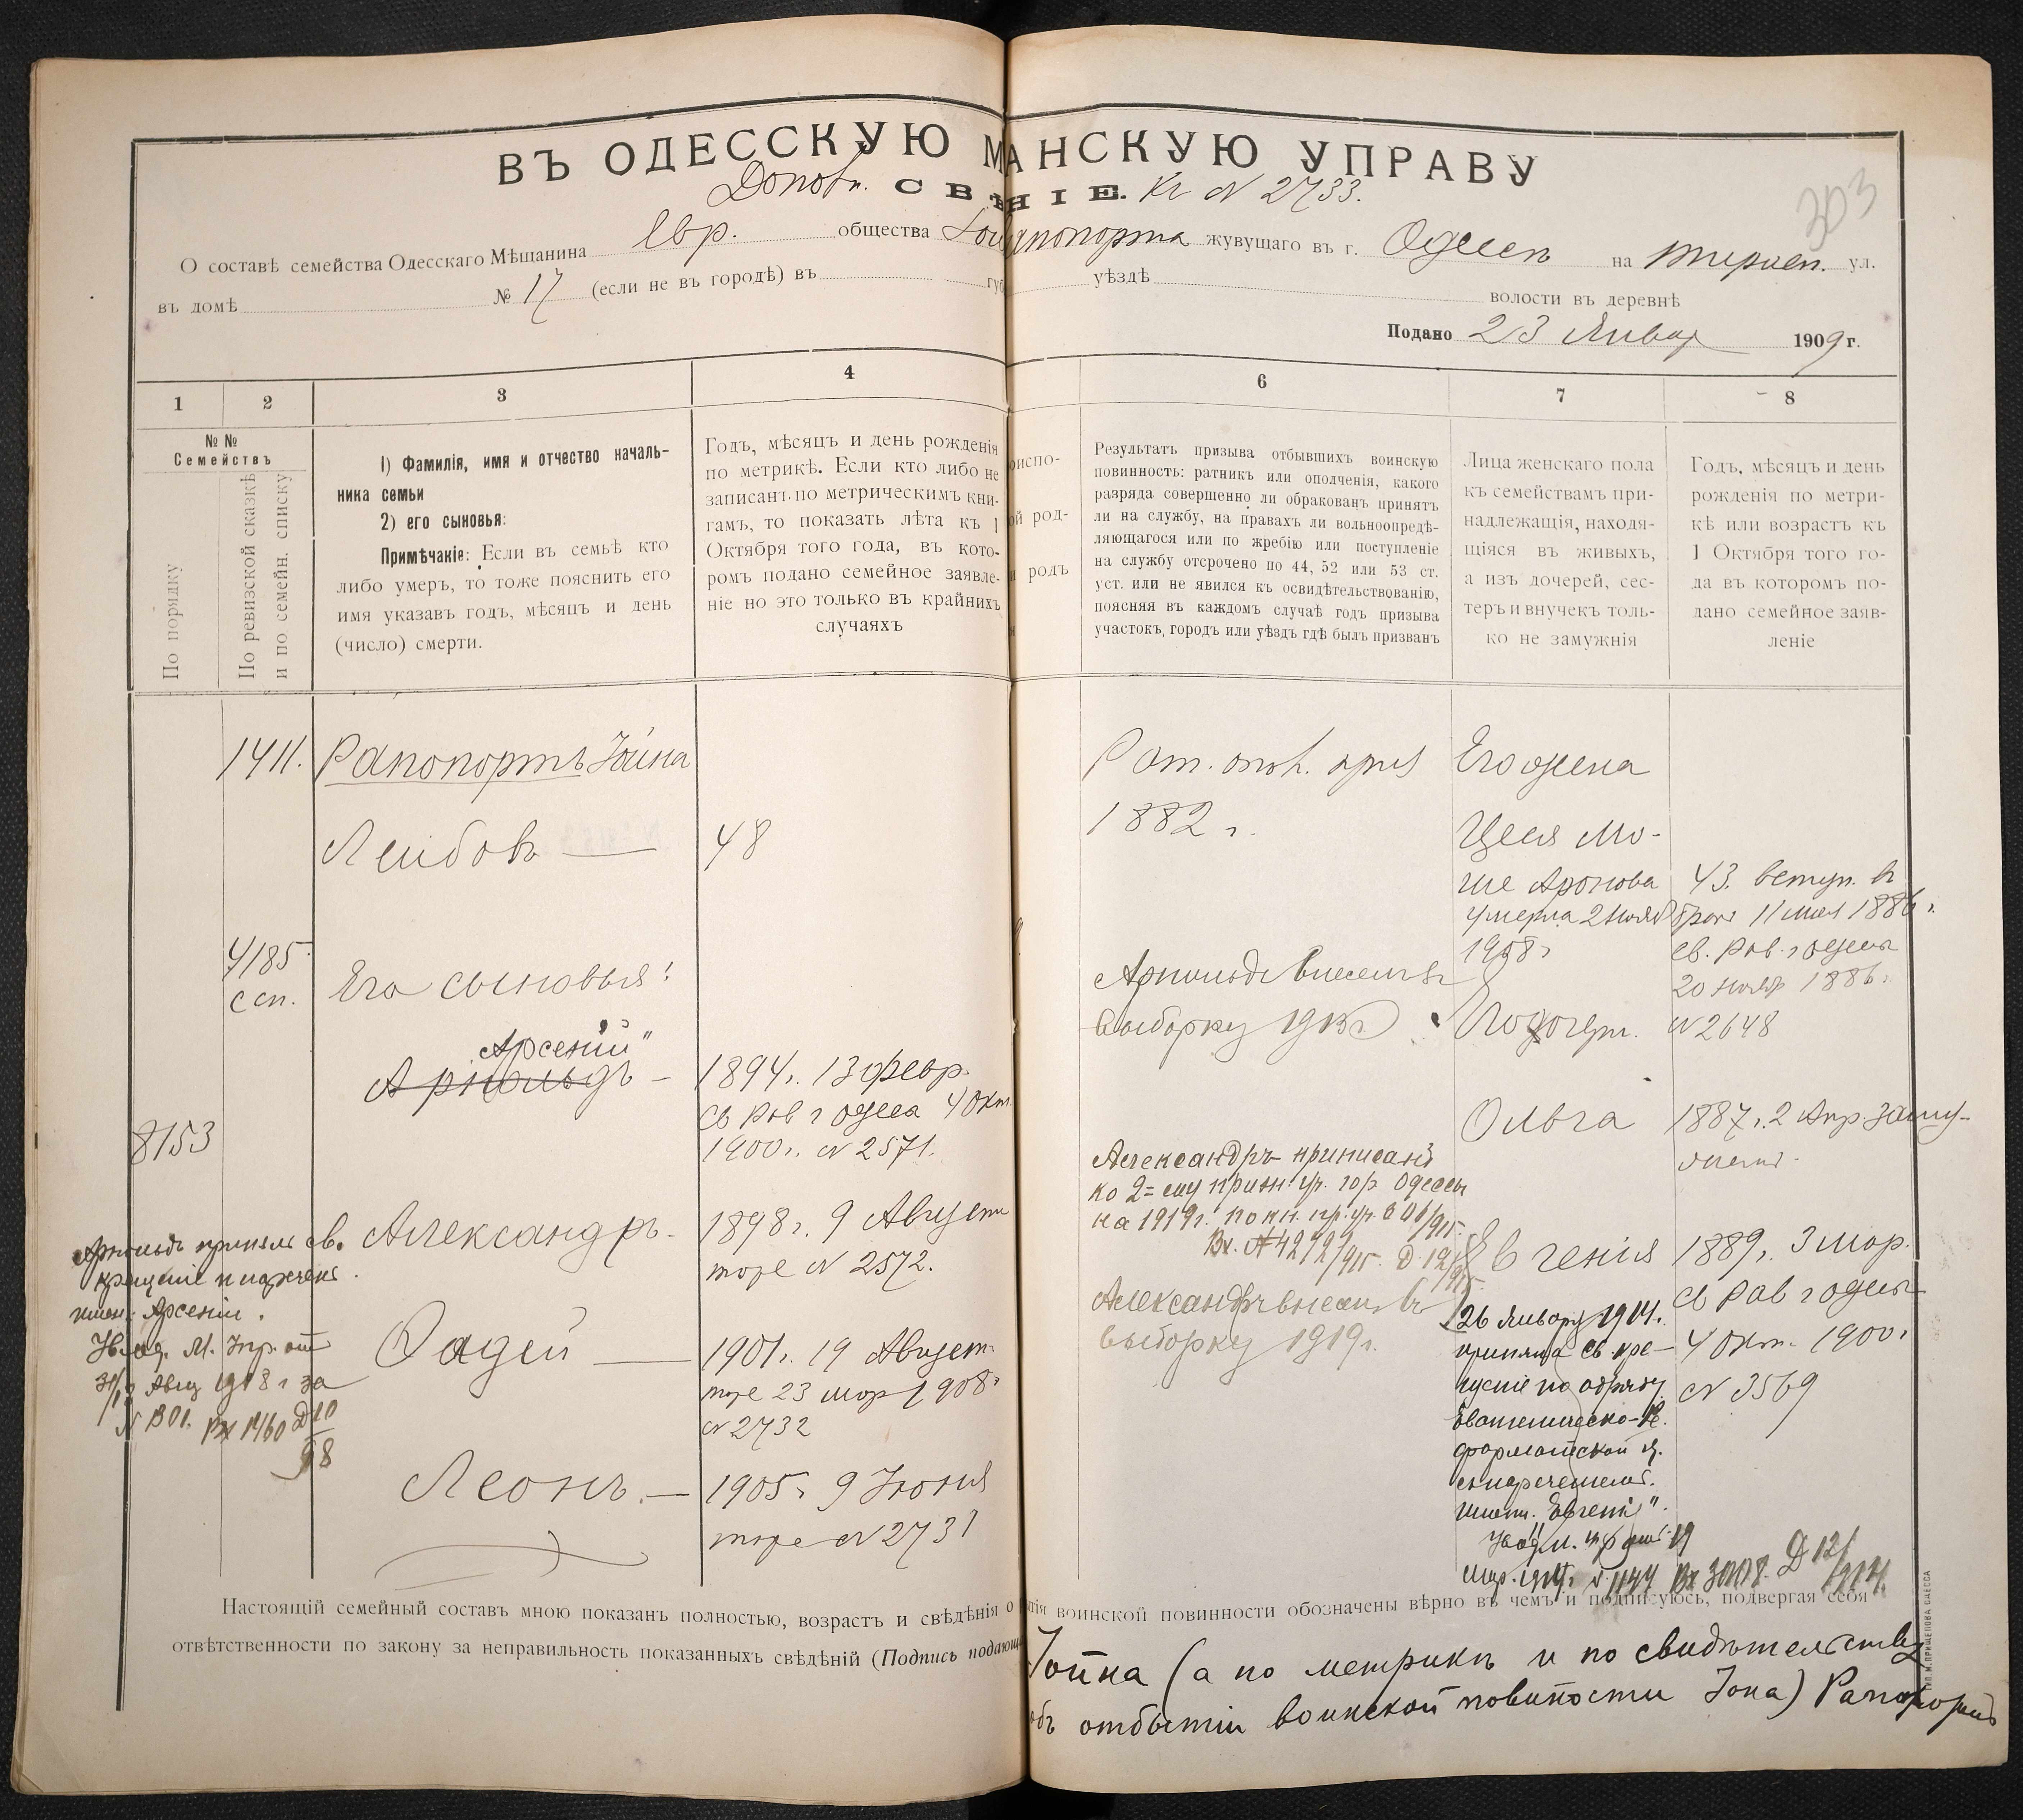 ВЪ ОДЕССКУЮ М АНСКУЮ УПРАВУ
СВѢ НІЕ. Кг № 2733.
303
О составѣ семейства Одесскаго Мѣщанина Евр. общества рапопорта жувущаго въ г. Одессѣ на ул.
въ домѣ № 17 (если не въ городѣ) въ губ уѣздѣ волости въ деревнѣ
Подано 23 Января 1909 г.
1 2 3 4 6 7 8
№ №
Семействъ
По порядку
По ревизской сказкѣ
и по семейн. списку
1) Фамилія, имя и отчество началь-
ника семьи
2) его сыновья:
Примѣчаніе: Если въ семьѣ кто
либо умеръ, то тоже пояснить его
имя указавъ годъ, мѣсяцъ и день
(число) смерти.
Годъ, мѣсяцъ и день рожденія
по метрикѣ. Если кто либо не
записанъ по метрическимъ кни-
гамъ, то показать лѣта къ 1
Октября того года, въ кото-
ромъ подано семейное заявле-
ніе но это только въ крайнихъ
случаяхъ
риспо-
ой род-
и родъ
Результатъ призыва отбывшихъ воинскую
повинность: ратникъ или ополченія, какого
разряда совершенно ли обракованъ принятъ
ли на службу, на правахъ ли вольноопредѣ-
ляющагося или по жребію или поступленіе
на службу отсрочено по 44, 52 или 53 ст.
уст. или не явился къ освидѣтельствованію,
поясняя въ каждомъ случаѣ годъ призыва
участокъ, городъ или уѣздъ гдѣ былъ призванъ
Лица женскаго пола
къ семействамъ при-
надлежащія, находя-
щіяся въ живыхъ,
а изъ дочерей, сес-
теръ и внучекъ толь-
ко не замужнія
Годъ, мѣсяцъ и день
рожденія по метри-
кѣ или возрастъ къ
1 Октября того го-
да въ котором по-
дано семейное заяв-
леніе
1411.
4185
с сп.
8153
Арнольдъ принялъ св.
крещеніе и нареченъ
имен. Арсеній.
Ув. од. М. Упр. отъ
31/ Авг 1918 г за
№ 1301. Вх 1460 Д 10
18
Рапопортъ Іойна
Лейбовъ
Его сыновья:
Арсеній"
Арнольдъ
Александръ
Фадей
Леонъ
48
1894 г. 13 февр.
св Рав г Одесса 4 Окт.
1900 г. № 2571.
1898 г. 9 Августа
тоже № 2572.
1901 г. 19 Август.
тоже 23 мар 1908 г
№ 2732
1905 г 9 Іюня
тоже № 2731
Рат. опол.
1882 г.
Арнольдъ внесенъ въ
выборку 1915 г
Александръ приписанъ
ко 2=му приз. уч. гор Одессы
на 1919 г. по кн. пр. уч.
Александръ внесенъ въ
выборку 1919 г.
Его жена
Цеся Мо-
ше Аронова
умерла 2 Нояб
1908 г
Его дочери.
Ольга
Евгенія
26 Января 1914 г.
приняла св. кре-
щеніе по обряду
Евангелическо-Ре-
форматской ц.
съ нареченіемъ
имен. "Евгенія".
Увѣд. М. Упр. отъ 19
мар. 1914 г. № 1144 Вх 3008. Д 12/914.
43. вступ. въ
бракъ 11 мая 1886 г.
св. Рав. г Одессы
20 нояб 1886 г.
№ 2648
1887 г. 2 Апр. заму-
жемъ.
1889 г. 3 мар.
св Рав г Одессы
4 Окт. 1900 г
№ 3569
Настоящій семейный составъ мною показанъ полностью, возрастъ и свѣдѣнія о тія воинской повинности обозначены вѣрно въ чемъ и подписуюсь, подвергая себя
отвѣтственности по закону за неправильность показанныхъ свѣдѣній (Подпись подающ
Іойна (а по метрикѣ и по свидѣтельству
объ отбытіи воинской повиности Іона) Рапопортъ
ТИП. М. ПРИЩЕПОВА ОДЕССА